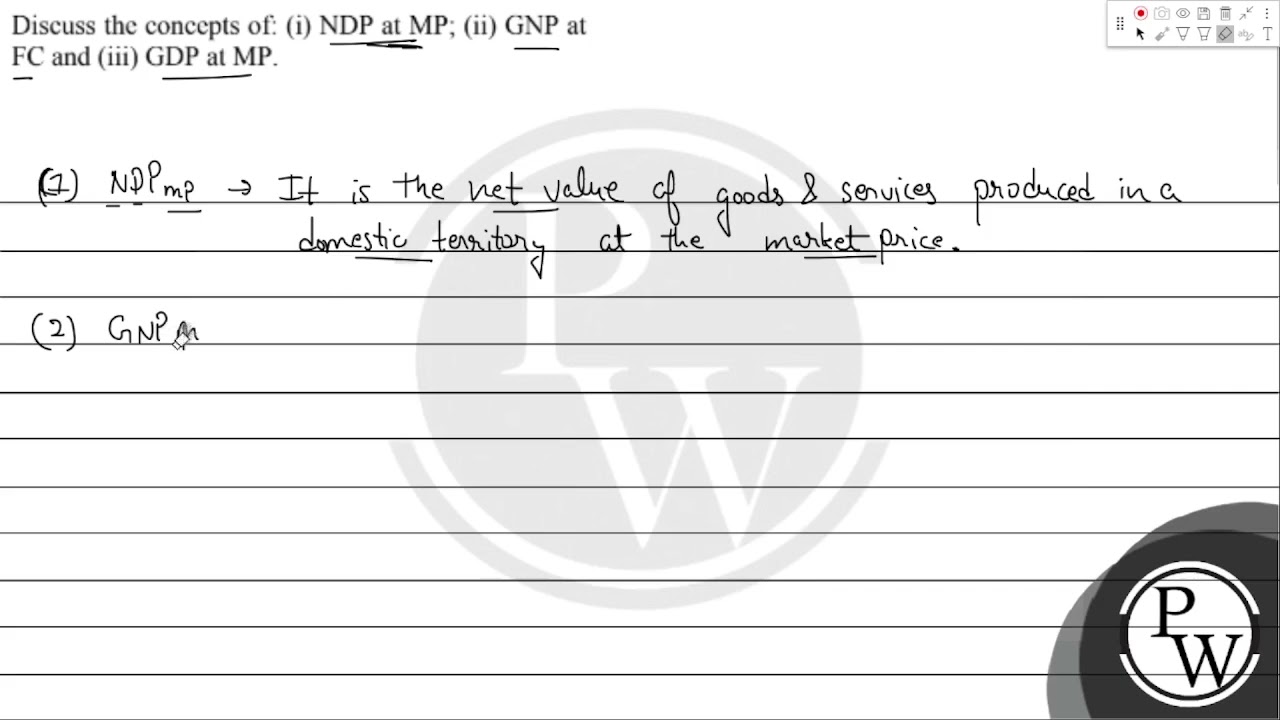 Discuss the concepts of: (i) NDP at MP; (ii) GNP at
FC and (iii) GDP at MP.
(1) NDP MP → It is the net value of goods & services produced in a
domestic territory at the market price.
(2) GNP
P
W
P
W